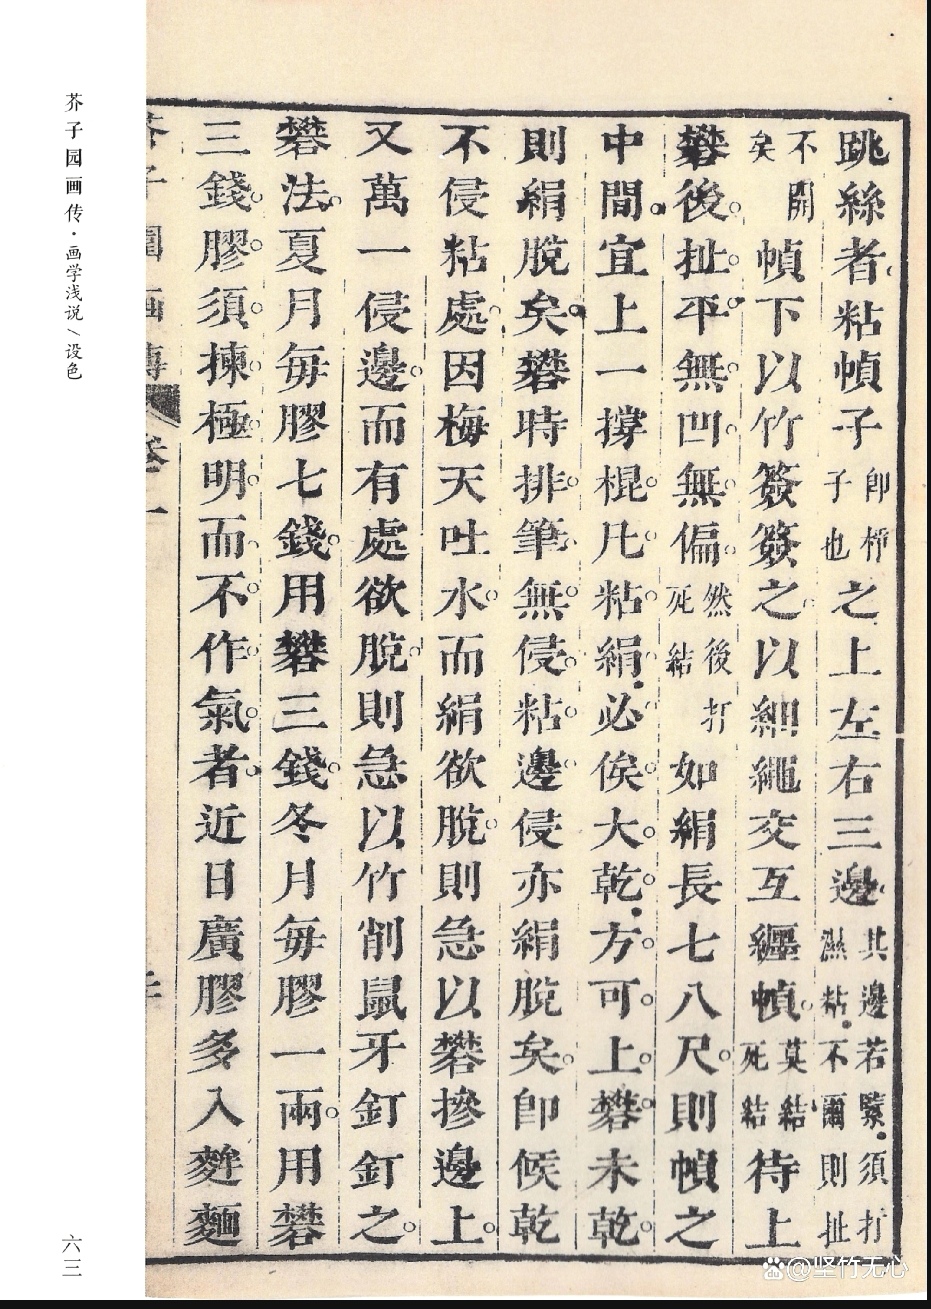 跳絲者粘幀子即桴子也之上左右三邊其邊若緊須打濕粘不爾則扯
不開矣幀下以竹簽簽之以細繩交互纒幀莫結死結待上
礬後扯平無凹無偏然後打死結如絹長七八尺則幀之
中間宜上一撐棍凡粘絹必俟大乾方可上礬未乾
則絹脫矣礬時排筆無侵粘邊侵亦絹脫矣即候乾
不侵粘處因梅天吐水而絹欲脫則急以礬摻邊上
又萬一侵邊而有處欲脫則急以竹削鼠牙釘釘之
礬法夏月每膠七錢用礬三錢冬月每膠一兩用礬
三錢膠須揀極明而不作氣者近日廣膠多入麰麵
芥子园画传·画学浅说/设色
六三
@坚竹无心